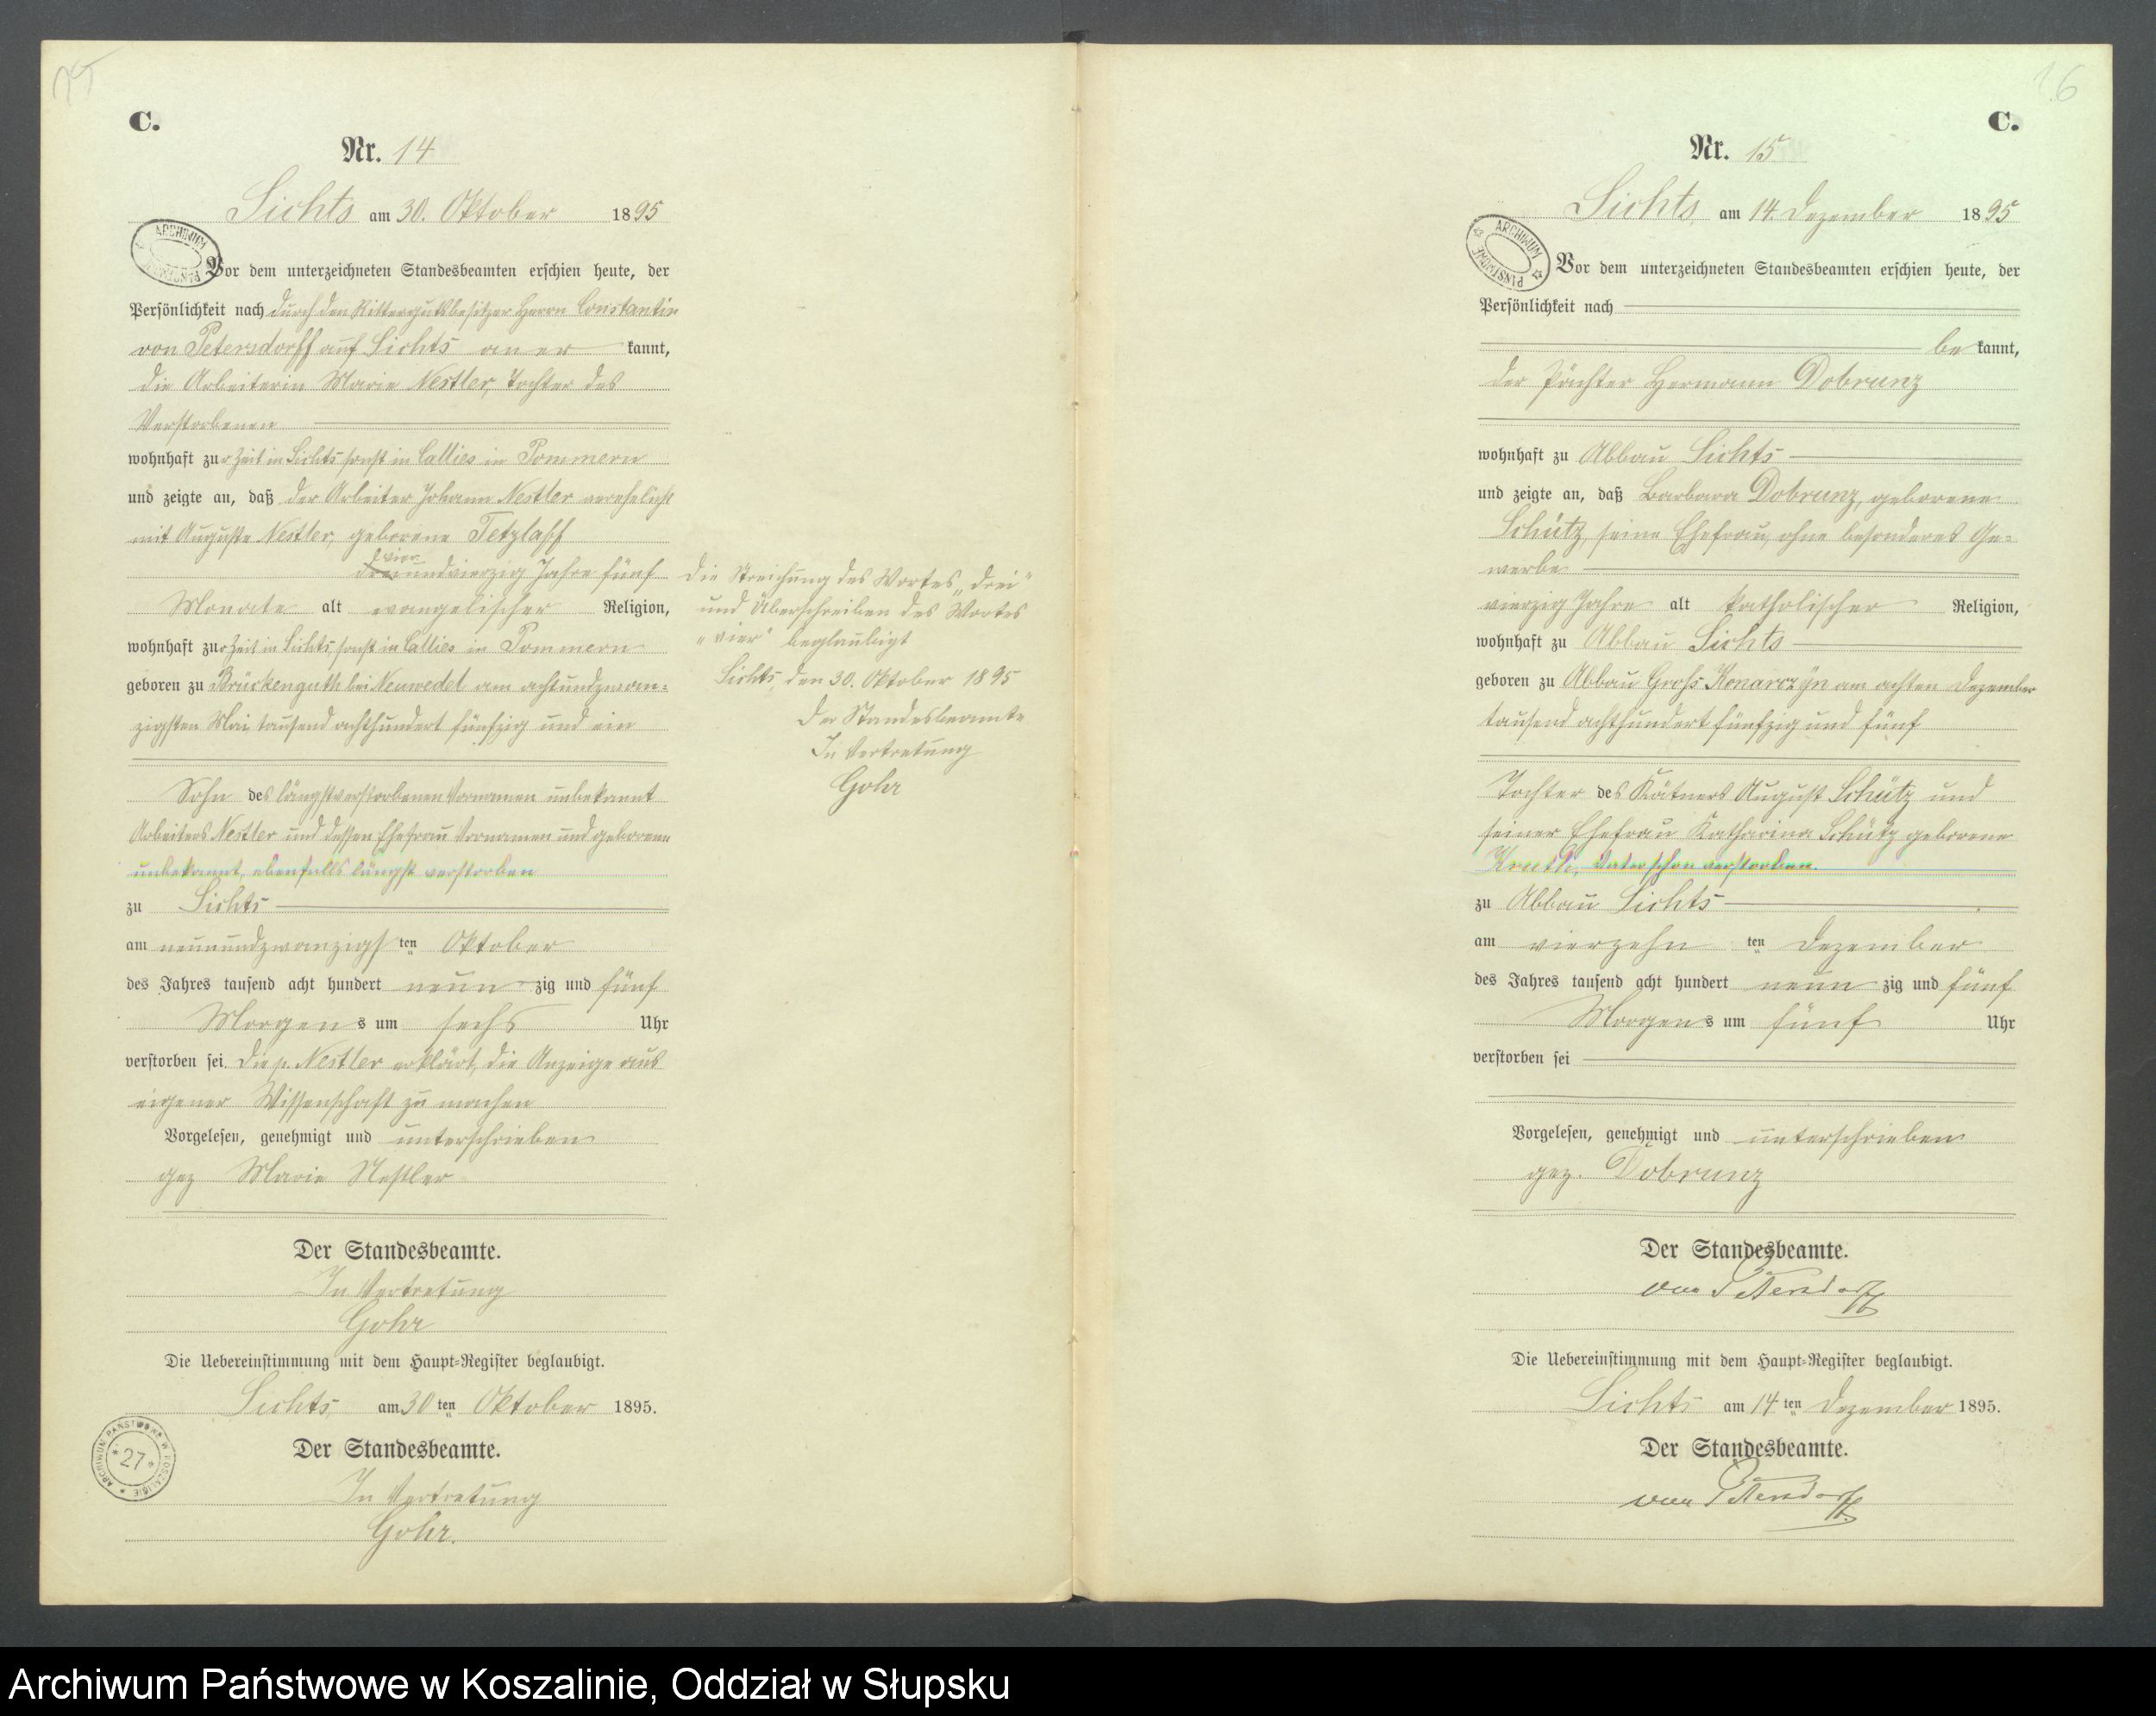 C.
Nr. 14
Lichts am 30. Oktober 1895
Vor dem unterzeichneten Standesbeamten erschien heute, der
Persönlichkeit nach durch den Rittergutsbesitzer Herrn Constantin
von Petersdorff auf Lichts aner kannt,
die Arbeiterin Marie Nestler, Tochter des
Verstorbenen
wohnhaft zur Zeit in Lichts sonst in Callies in Pommern
und zeigte an, daß der Arbeiter Johann Nestler verehelicht
mit Auguste Nestler, geborene Tetzlaff
vier
dreiundvierzig Jahre fünf
Monate alt evangelischer Religion,
wohnhaft zur Zeit in Lichts sonst in Callies in Pommern
geboren zu Brückenguth bei Neuwedel am achtundzwan=
zigsten Mai tausend achthundert fünfzig und ein
Sohn des längstverstorbenen Vornamen unbekannt
Arbeiters Nestler und dessen Ehefrau Vornamen und geborene
unbekannt, ebenfalls längst verstorben
zu Lichts
am neunundzwanzigs ten Oktober
des Jahres tausend acht hundert neun zig und fünf
Morgens um sechs Uhr
verstorben sei. Die p. Nestler erklärt, die Anzeige aus
eigener Wissenschaft zu machen
Vorgelesen, genehmigt und unterschrieben
gez Marie Nestler
Der Standesbeamte.
In Vertretung
Gohr
Die Uebereinstimmung mit dem Haupt-Register beglaubigt.
Lichts, am 30 ten Oktober 1895.
Der Standesbeamte.
In Vertretung
Gohr.
Die Streichung des Wortes „drei"
und Überschreiben des Wortes
„vier" beglaubigt
Lichts, den 30. Oktober 1895
Der Standesbeamte
In Vertretung
Gohr
ARCHIWUM PAŃSTWOWE W KOSZALINIE
27
C.
Nr. 15
Lichts, am 14. Dezember 1895
ARCHIWUM PAŃSTWOWE
Vor dem unterzeichneten Standesbeamten erschien heute, der
Persönlichkeit nach
be kannt,
der Pächter Hermann Dobrunz
wohnhaft zu Abbau Lichts
und zeigte an, daß Barbara Dobrunz, geborene
Schütz, seine Ehefrau, ohne besonderes Ge=
werbe
vierzig Jahre alt katholischer Religion,
wohnhaft zu Abbau Lichts
geboren zu Abbau Groß Konarczyn am achten Dezember
tausend achthundert fünfzig und fünf
Tochter des Kätners August Schütz und
seiner Ehefrau Katharina Schütz geborene
Vater schon verstorben.
zu Abbau Lichts
am vierzehn ten Dezember
des Jahres tausend acht hundert neun zig und fünf
Morgens um fünf Uhr
verstorben sei
Vorgelesen, genehmigt und unterschrieben
gez. Dobrunz
Der Standesbeamte.
von Petersdorff
Die Uebereinstimmung mit dem Haupt-Register beglaubigt.
Lichts am 14 ten Dezember 1895.
Der Standesbeamte.
von Petersdorff
Archiwum Państwowe w Koszalinie, Oddział w Słupsku